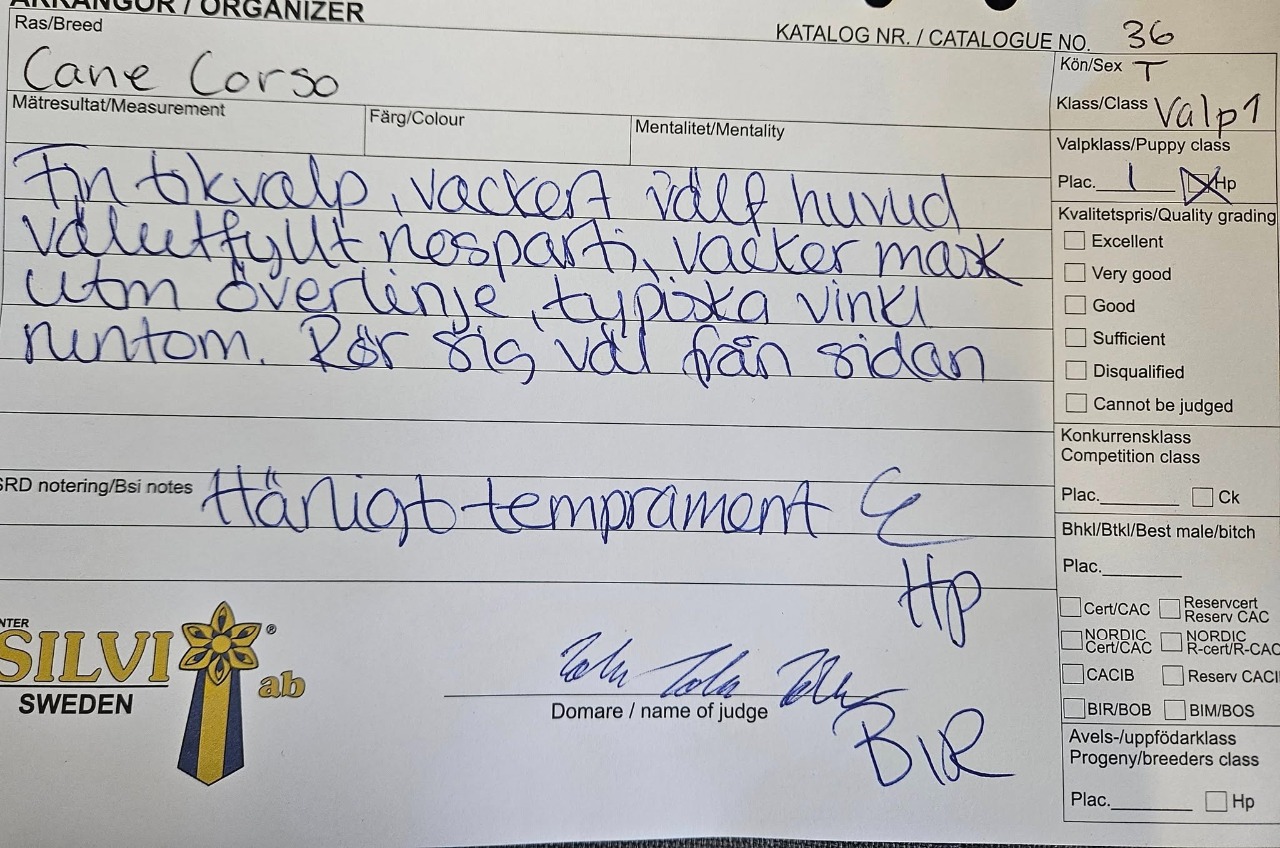 ARRANGÖR / ORGANIZER
Ras/Breed
Cane Corso
KATALOG NR. / CATALOGUE NO. 36
Kön/Sex T
Klass/Class Valp 1
Mätresultat/Measurement
Färg/Colour
Mentalitet/Mentality
Fin tikvalp, vackert välf huvud
välutfyllt nosparti, vacker mask
utm överlinje, typiska vinkl
runtom. Rör sig väl från sidan
SRD notering/Bsi notes Härligt temprament
Hp
NTER
SILVI ® ab
SWEDEN
Domare / name of judge
BIR
Valpklass/Puppy class
Plac. 1 Hp
Kvalitetspris/Quality grading
Excellent
Very good
Good
Sufficient
Disqualified
Cannot be judged
Konkurrensklass
Competition class
Plac. Ck
Bhkl/Btkl/Best male/bitch
Plac.
Cert/CAC Reservcert Reserv CAC
NORDIC Cert/CAC NORDIC R-cert/R-CAC
CACIB Reserv CACI
BIR/BOB BIM/BOS
Avels-/uppfödarklass
Progeny/breeders class
Plac. Hp